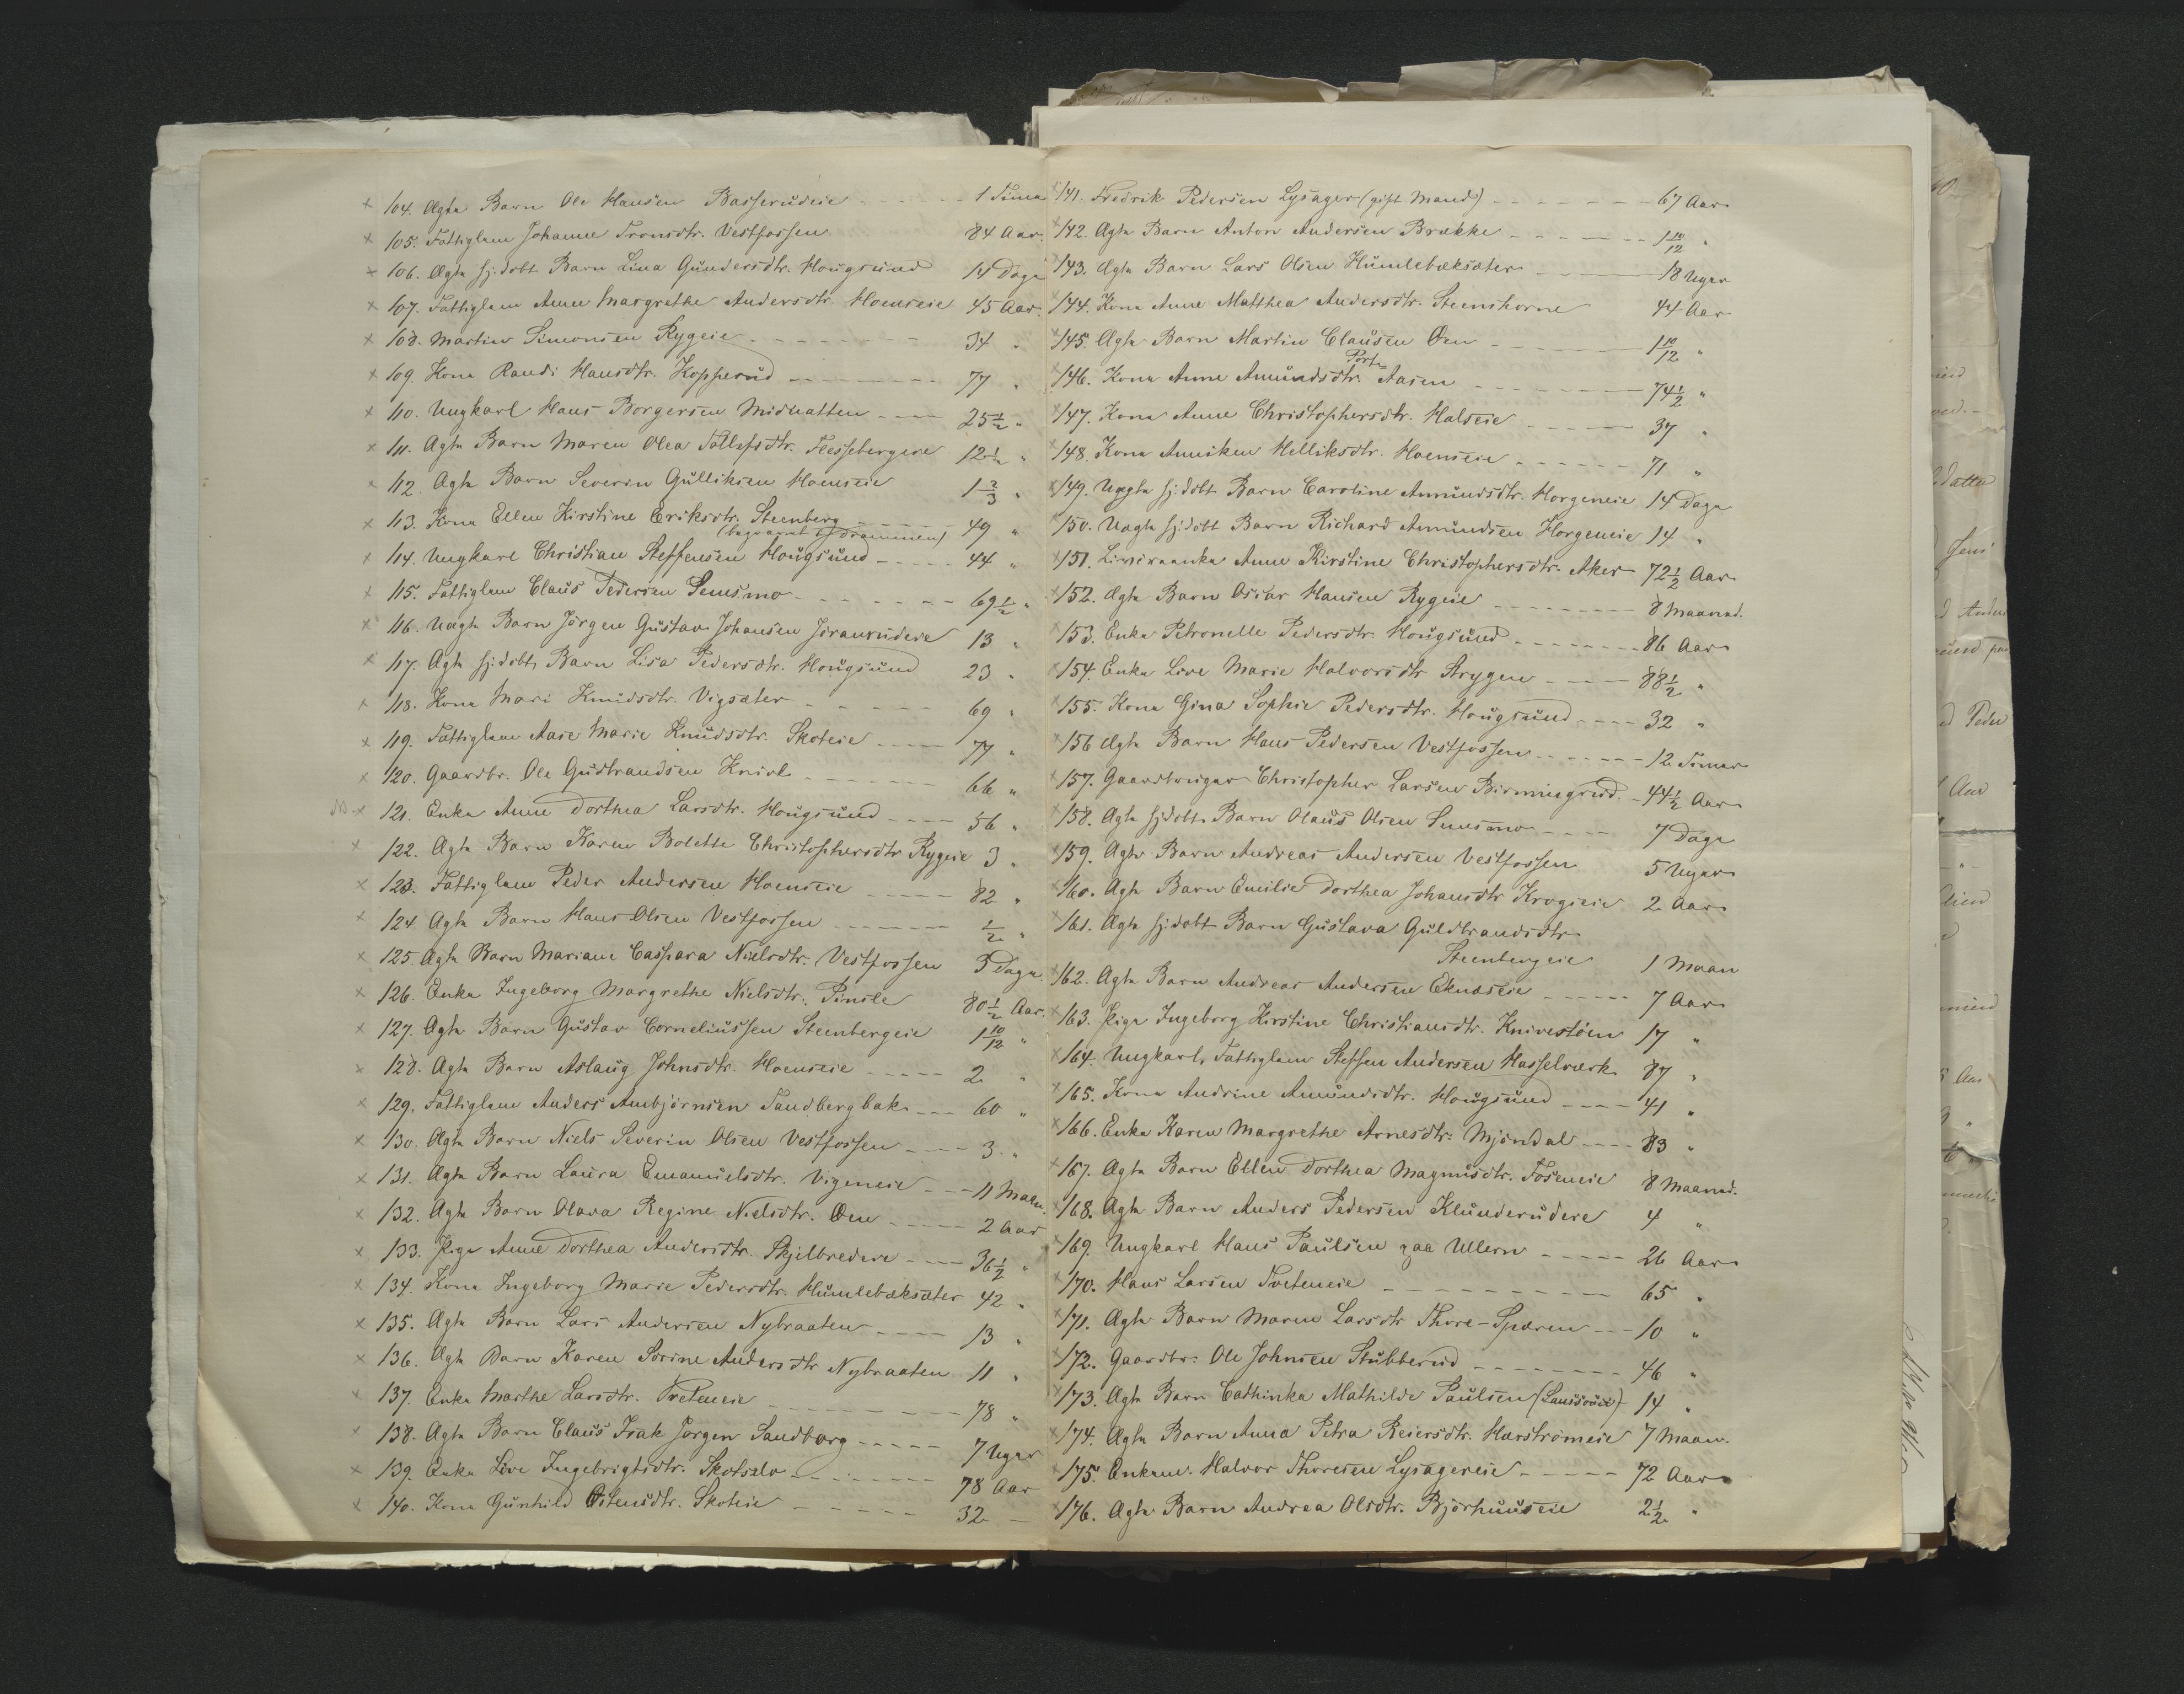 104. Ægte Barn Ole Hansen Basserudeie - - - - 1 Time
105. Fattiglem Johanne Tronsdtr. Vestfossen 84 Aar.
106. Ægte hj.døbt Barn Lina Gundersdtr. Hougsund 14 Dage
107. Fattiglem Anne Margrethe Andersdtr. Hoenseie 45 Aar.
108. Martin Simonsen Rygeie - - - - 34 "
109. Kone Randi Hansdtr. Kopperud - - - - 77 "
110. Ungkarl Hans Borgersen Midnatten - - - - 25 1/2 "
111. Ægte Barn Maren Olea Tollefsdtr. Flessebergeie 12 1/2 "
112. Ægte Barn Severin Gulliksen Hoenseie 1 2/3 "
113. Kone Ellen Kirstine Eriksdtr. Steenberg - - - - 49 "
(begravet i Drammen)
114. Ungkarl Christian Steffensen Hougsund - - - - 44 "
115. Fattiglem Claus Pedersen Semsmo - - - - 69 1/2 "
116. Uægte Barn Jörgen Gustav Johansen Jöranrudeie 13 "
117. Ægte hj.døbt Barn Lisa Pedersdtr. Hougsund 23 "
118. Kone Mari Knudsdtr. Vigsæter - - - - 69 "
119. Fattiglem Aase Marie Knudsdtr. Skoteie - - - - 77 "
120. Gaardbr. Ole Gudbrandsen Knive - - - - 66 "
121. Enke Anne Dorthea Larsdtr. Hougsund - - - - 56 "
122. Ægte Barn Karen Bolette Christophersdtr Rygeie 3 "
123. Fattiglem Peder Andersen Hoenseie - - - - 82 "
124. Ægte Barn Hans Olsen Vestfossen - - - - 1/2 "
125. Ægte Barn Mariane Caspara Nielsdtr. Vestfossen 5 Dage
126. Enke Ingeborg Margrethe Nielsdtr. Pinsle 80 1/2 Aar.
127. Ægte Barn Gustav Corneliussen Steenbergeie 1 10/12 "
128. Ægte Barn Aslaug Johnsdtr. Hoenseie - - - - 2 "
129. Fattiglem Anders Ambjörnsen Sandbergbak - - - 60 "
130. Ægte Barn Niels Severin Olsen Vestfossen - - - 3 "
131. Ægte Barn Laura Emanuelsdtr. Vigeneie - - - 11 Maan.
132. Ægte Barn Olava Regine Nielsdtr. Öen - - - - 2 Aar
133. Pige Anne Dorthea Andersdtr. Skjelbredeie - - - 36 1/2 "
134. Kone Ingeborg Marie Pedersdtr. Humlebæksæter 42 "
135. Ægte Barn Lars Andersen Nybraaten - - - - 13 "
136. Ægte Barn Karen Sörine Andersdtr Nybraaten 11 "
137. Enke Marthe Larsdtr. Tveteneie - - - - 78 "
138. Ægte Barn Claus Isak Jörgen Sandberg - - - - 7 Uger
139. Enke Live Ingebrigtsdtr. Skotselv - - - - 78 Aar
140. Kone Gunhild Östensdtr. Skoteie - - - - 32 -
141. Fredrik Pedersen Lysager (gift Mand) - - - - 67 Aar
142. Ægte Barn Anton Andersen Brække - - - - 1 10/12 "
143. Ægte Barn Lars Olsen Humlebæksæter - - - 18 Uger
144. Kone Anne Matthea Andersdtr. Steenshorne 44 Aar
145. Ægte Barn Martin Clausen Öen - - - - 1 10/12 "
Port-
146. Kone Anne Amundsdtr. Aasen - - - - 74 1/2 "
147. Kone Anne Christophersdtr. Halseie - - - - 37 "
148. Kone Anniken Helliksdtr. Hoenseie - - - - 71 "
149. Uægte hj.døbt Barn Caroline Amundsdtr. Horgeneie 14 Dage
150. Uægte hj.døbt Barn Richard Amundsen Horgeneie 14 "
151. Anne Kirstine Christophersdtr. Aker 72 1/2 Aar
152. Ægte Barn Oscar Hansen Rygeie - - - - 8 Maaned.
153. Enke Petronelle Pedersdtr. Hougsund - - - - 86 Aar
154. Enke Live Marie Halvorsdtr Strygen - - - - 88 1/2 "
155. Kone Gina Sophie Pedersdtr. Hougsund - - - - 32 "
156 Ægte Barn Hans Pedersen Vestfossen - - - - 12 Timer
157. Gaardbruger Christopher Larsen Birmingrud - 44 1/2 Aar
158. Ægte hjdøbt Barn Olaus Olsen Semsmo - - - - 7 Dage
159. Ægte Barn Andreas Andersen Vestfossen 5 Uger
160. Ægte Barn Emilie Dorthea Johansdtr Krogseie 2 Aar
161. Ægte hj.døbt Barn Gustava Guldbrandsdtr
Steenbergeie 1 Maan
162. Ægte Barn Andreas Andersen Eknæseie - - - - 7 Aar
163. Pige Ingeborg Kirstine Christiansdtr. Knivestöen 17 "
164. Ungkarl, Fattiglem Steffen Andersen Hasselværk 87 "
165. Kone Andrine Amundsdtr. Hougsund - - - - 41 "
166. Enke Karen Margrethe Arnesdtr. Mjöndal - - - - 83 "
167. Ægte Barn Ellen Dorthea Magnusdtr. Foseneie 8 Maaned.
168. Ægte Barn Anders Pedersen Klunderudeie 4 "
169. Ungkarl Hans Paulsen paa Ullern - - - - 26 Aar
170. Hans Larsen Tveteneie - - - - 65 "
171. Ægte Barn Maren Larsdtr Thore-Spæren - - - 10 "
172. Gaardbr. Ole Johnsen Stubberud - - - - 46 "
173. Ægte Barn Cathinka Mathilde Paulsen - 14 "
174. Ægte Barn Anna Petra Reiersdtr. Hærströmeie 7 Maan.
175. Enkem. Halvor Thoresen Lysagereie - - - - 72 Aar
176. Ægte Barn Andrea Olsdtr. Björhuuseie 2 1/2 "